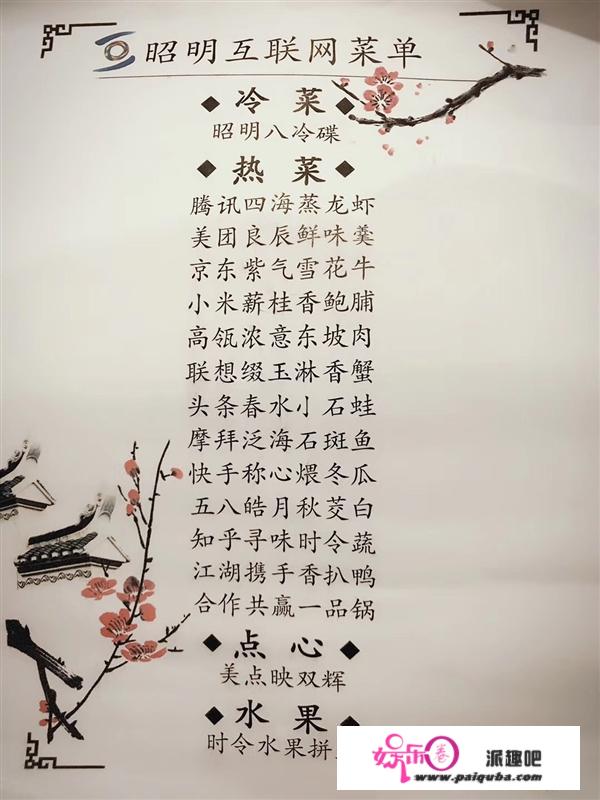 昭明互联网菜单
冷菜
昭明八冷碟
热菜
腾讯四海蒸龙虾
美团良辰鲜味羹
京东紫气雪花牛
小米薪桂香鲍脯
高瓴浓意东坡肉
联想缀玉淋香蟹
头条春水小石蛙
摩拜泛海石斑鱼
快手称心煨冬瓜
五八皓月秋茭白
知乎寻味时令蔬
江湖携手香扒鸭
合作共赢一品锅
点心
美点映双辉
水果
时令水果拼
娱乐圈 派趣吧
www.paiquba.com